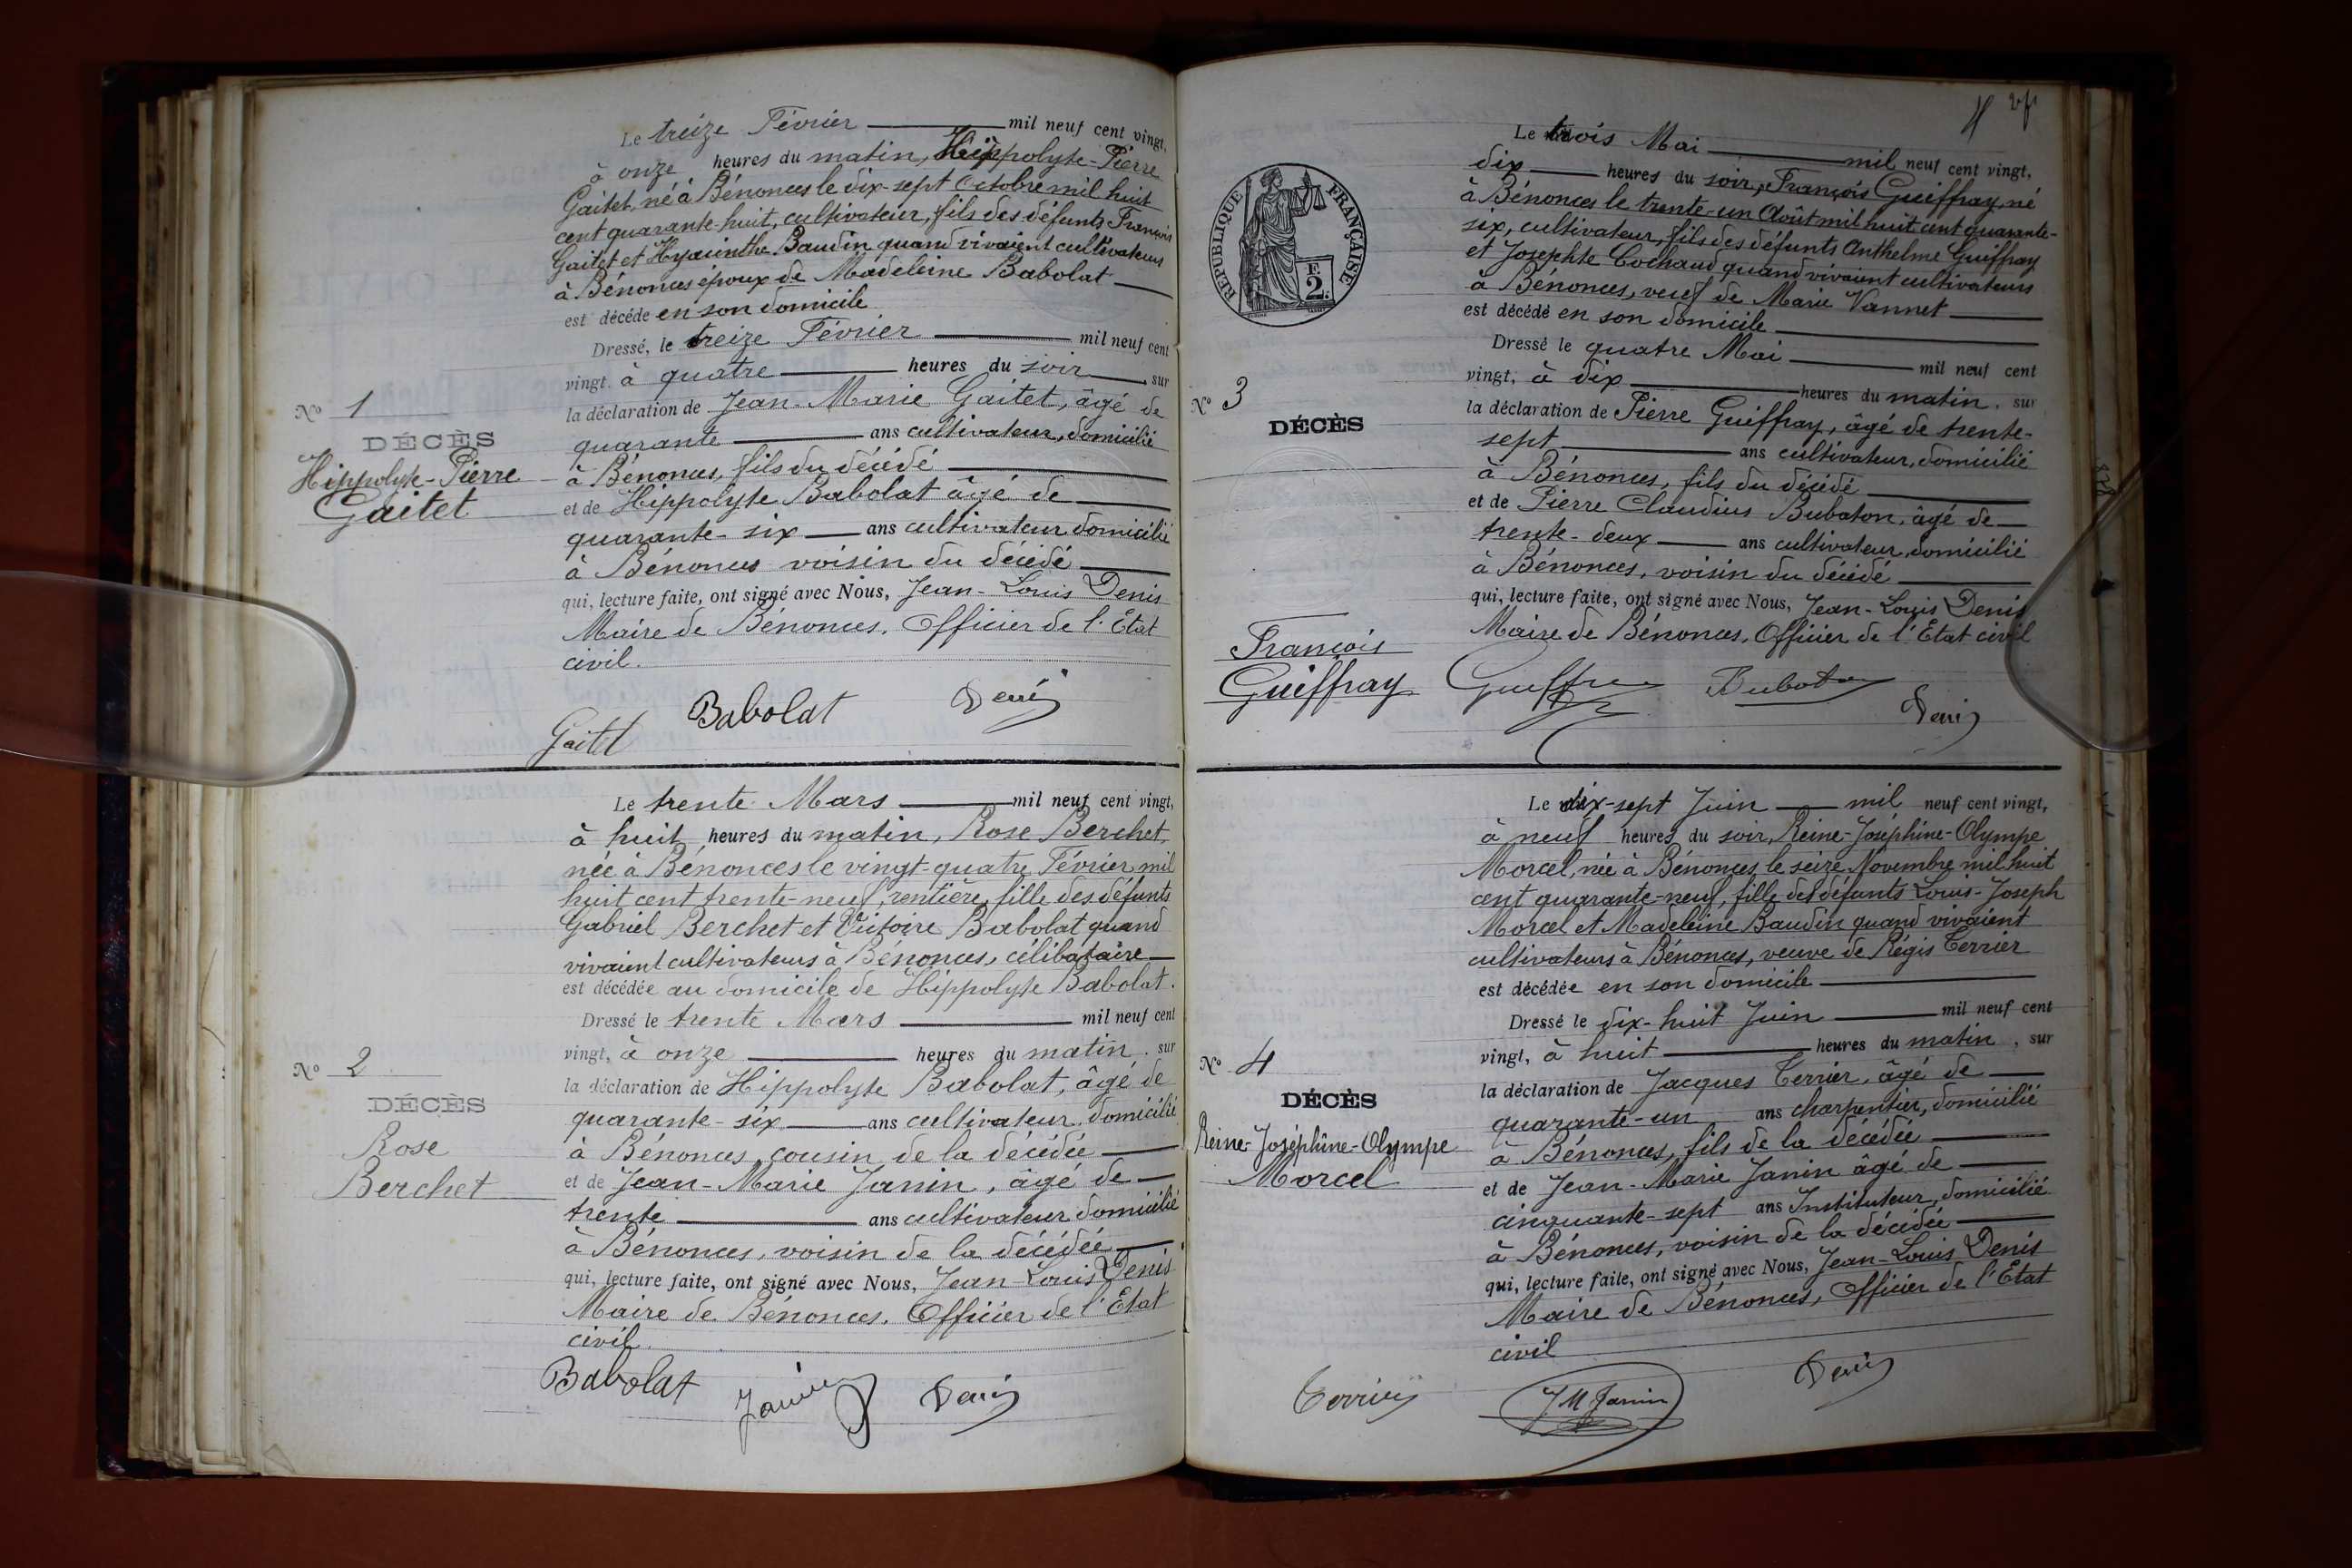 Le treize Février mil neuf cent vingt,
à onze heures du matin, Hippolyte-Pierre
Gaitet, né à Bénonces le dix-sept Octobre mil huit
cent quarante-huit, cultivateur, fils des défunts François
Gaitet et Hyacinthe Baudin quand vivaient cultivateurs
à Bénonces époux de Madeleine Babolat
est décédé en son domicile
Dressé, le treize Février mil neuf cent
vingt, à quatre heures du soir, sur
la déclaration de Jean-Marie Gaitet, âgé de
quarante ans cultivateur, domicilié
à Bénonces, fils du décédé
et de Hippolyte Babolat âgé de
quarante-six ans cultivateur domicilié
à Bénonces voisin du décédé
qui, lecture faite, ont signé avec Nous, Jean-Louis Denis
Maire de Bénonces. Officier de l'Etat
civil.
Gaitet Babolat Denis
N° 1
DÉCÈS
Hippolyte-Pierre
Gaitet
Le trente Mars mil neuf cent vingt,
à huit heures du matin, Rose Berchet,
née à Bénonces le vingt-quatre Février mil
huit cent trente-neuf, rentière, fille des défunts
Gabriel Berchet et Victoire Babolat quand
vivaient cultivateurs à Bénonces, célibataire
est décédée au domicile de Hippolyte Babolat.
Dressé le trente Mars mil neuf cent
vingt, à onze heures du matin, sur
la déclaration de Hippolyte Babolat, âgé de
quarante-six ans cultivateur domicilié
à Bénonces, cousin de la décédée
et de Jean-Marie Janin, âgé de
trente ans cultivateur domicilié
à Bénonces, voisin de la décédée
qui, lecture faite, ont signé avec Nous, Jean-Louis Denis
Maire de Bénonces. Officier de l'Etat
civil.
Babolat Janin Denis
N° 2
DÉCÈS
Rose
Berchet
Le trois Mai mil neuf cent vingt,
dix heures du soir, François Gueiffray, né
à Bénonces le trente-un Août mil huit cent quarante-
six, cultivateur, fils des défunts Anthelme Guiffray
et Josephte Cochaud quand vivaient cultivateurs
à Bénonces, veuf de Marie Vannet
est décédé en son domicile
Dressé le quatre Mai mil neuf cent
vingt, à dix heures du matin, sur
la déclaration de Pierre Gueiffray, âgé de trente-
sept ans cultivateur, domicilié
à Bénonces, fils du décédé
et de Pierre Claudius Bubaton, âgé de
trente-deux ans cultivateur, domicilié
à Bénonces, voisin du décédé
qui, lecture faite, ont signé avec Nous, Jean-Louis Denis
Maire de Bénonces, Officier de l'Etat civil
Denis
RÉPUBLIQUE FRANÇAISE
2F.
N° 3
DÉCÈS
François
Gueiffray
Le dix-sept Juin mil neuf cent vingt,
à neuf heures du soir, Reine-Joséphine-Olympe
Morcel, née à Bénonces le seize Novembre mil huit
cent quarante-neuf, fille des défunts Louis-Joseph
Morcel et Madeleine Baudin quand vivaient
cultivateurs à Bénonces, veuve de Régis Terrier
est décédée en son domicile
Dressé le dix-huit Juin mil neuf cent
vingt, à huit heures du matin, sur
la déclaration de Jacques Terrier, âgé de
quarante-un ans charpentier, domicilié
à Bénonces, fils de la décédée
et de Jean-Marie Janin âgé de
cinquante-sept ans Instituteur, domicilié
à Bénonces, voisin de la décédée
qui, lecture faite, ont signé avec Nous, Jean-Louis Denis
Maire de Bénonces, Officier de l'Etat
civil
Terrier J M Janin Denis
N° 4
DÉCÈS
Reine-Joséphine-Olympe
Morcel